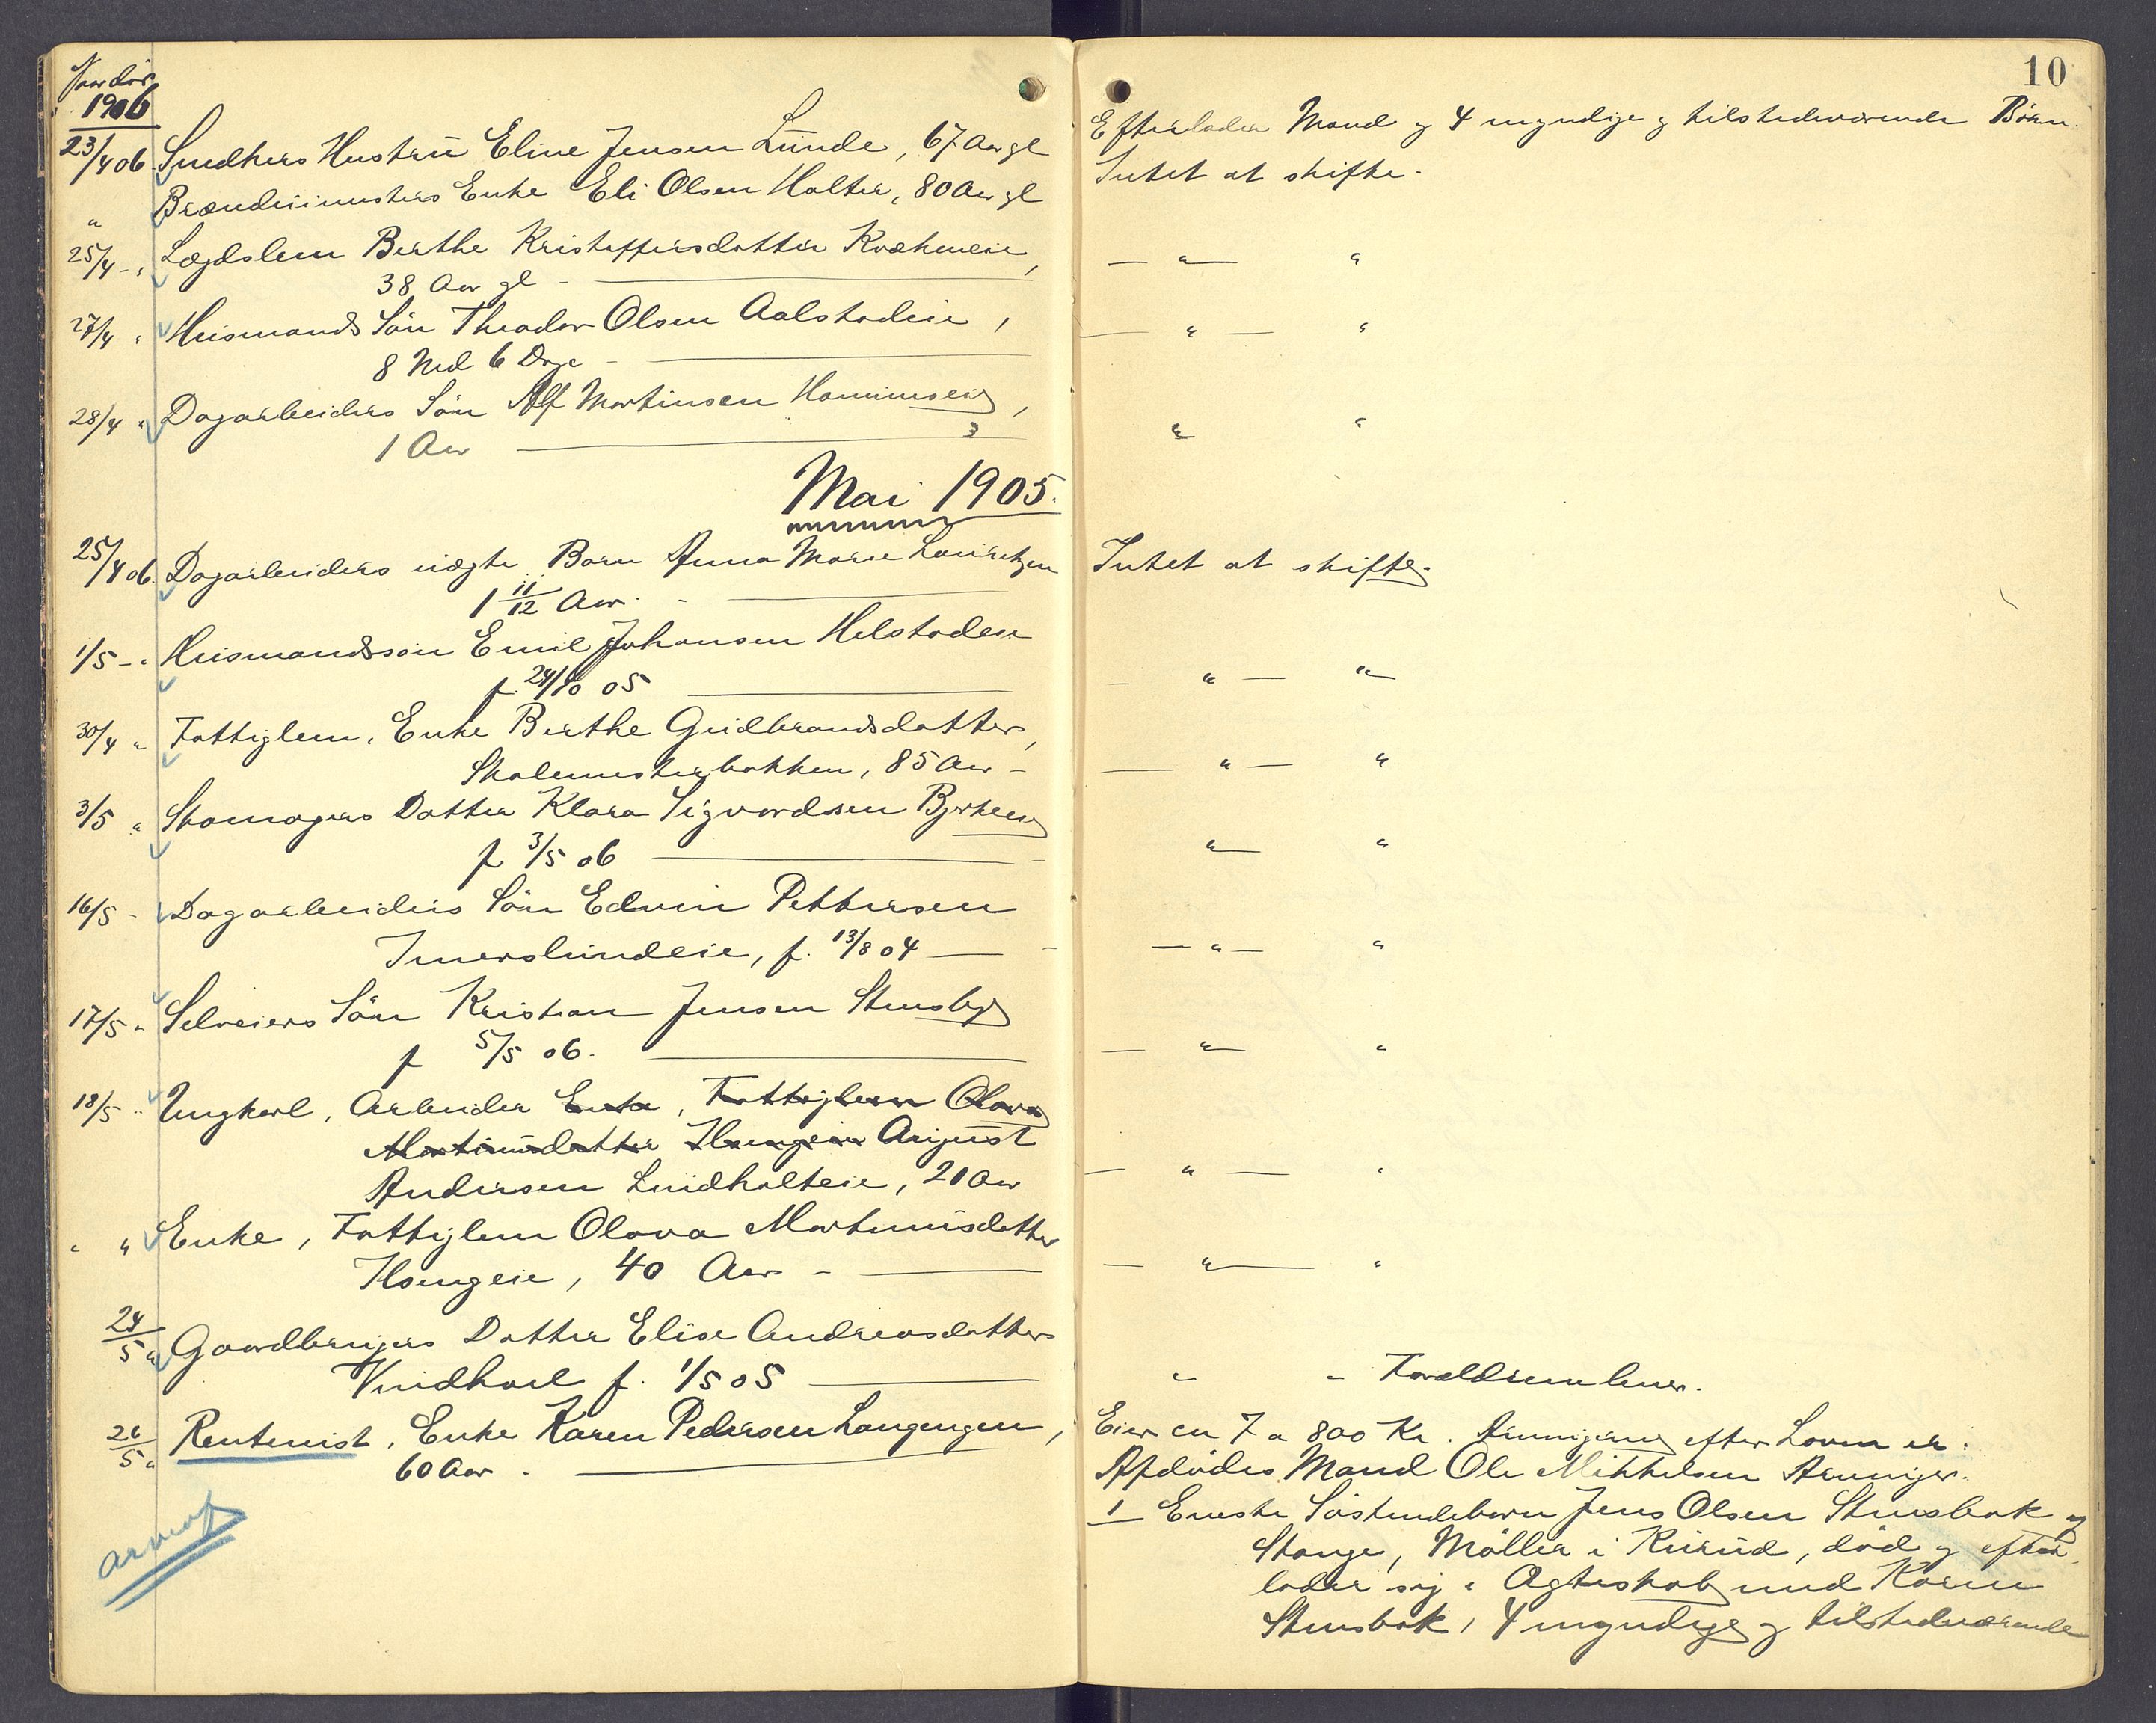 Naar død
1906
23/4 06 Snedkers Hustrü Eline Jensen Lünde, 67 Aar gl
" Brændeiinusters Enke Eli Olsen Holter, 80 Aar gl
25/4 - " Lægdslem Berthe Kristoffersdatter Kvækneeie,
38 Aar gl -
27/4 " Husmands Søn Theodor Olsen Aalstadeie,
8 Md 6 Dage -
28/4 " Dagarbeiders Søn Alf Martinsen Hammerseie,
1 Aar
Mai 1905.
25/4 06. Dagarbeiders uægte Barn Anna Marie Lauritzen
1 11/12 Aar. -
1/5 - " Husmandssøn Emil Johansen Helstadeie
f. 24/10 05
30/4 " Fattiglem, Enke Berthe Gudbrandsdatter,
Skolemesterbakken, 85 Aar -
3/5 " Skomagers Datter Klara Sigvardsen Bjerkeeie
f 3/5 06
16/5 - Dagarbeiders Søn Edvin Pettersen
Imerslundeie, f. 13/8 04
17/5 " Selveiers Søn Kristian Jensen Stensby
f 5/5 06.
18/5 " Ungkarl, Arbeider Enke, Fattiglem Olava
Martinusdatter Haugeie August
Andersen Lundholteie, 20 Aar
" " Enke, Fattiglem Olava Martinusdatter
Haugeie, 40 Aar -
24/5 " Gaardbrugers Datter Elise Andreasdatter
Vindhol f. 1/5 05
26/5 " Rentenist, Enke Karen Pedersen Langengen,
60 Aar.
10
Efterlader Mand og 4 myndige og tilstedeværende Børn.
Intet at skifte.
— " — "
— " — "
" "
Intet at skifte.
— " — "
— " — "
" — "
— " — "
— " — "
— " — "
— " — "
" " Forældrene lever.
Eier ca 7 a 800 Kr. Arvinger efter Loven er:
Afdødes Mand Ole Mikkelsen Arvinger.
1 Eneste Søskendebarn Jens Olsen Stensbak og
Stange, Møller i Kurud, død og efter
lader sig i Ægteskab med Karen
Stensbak, 4 myndige og tilstedeværende